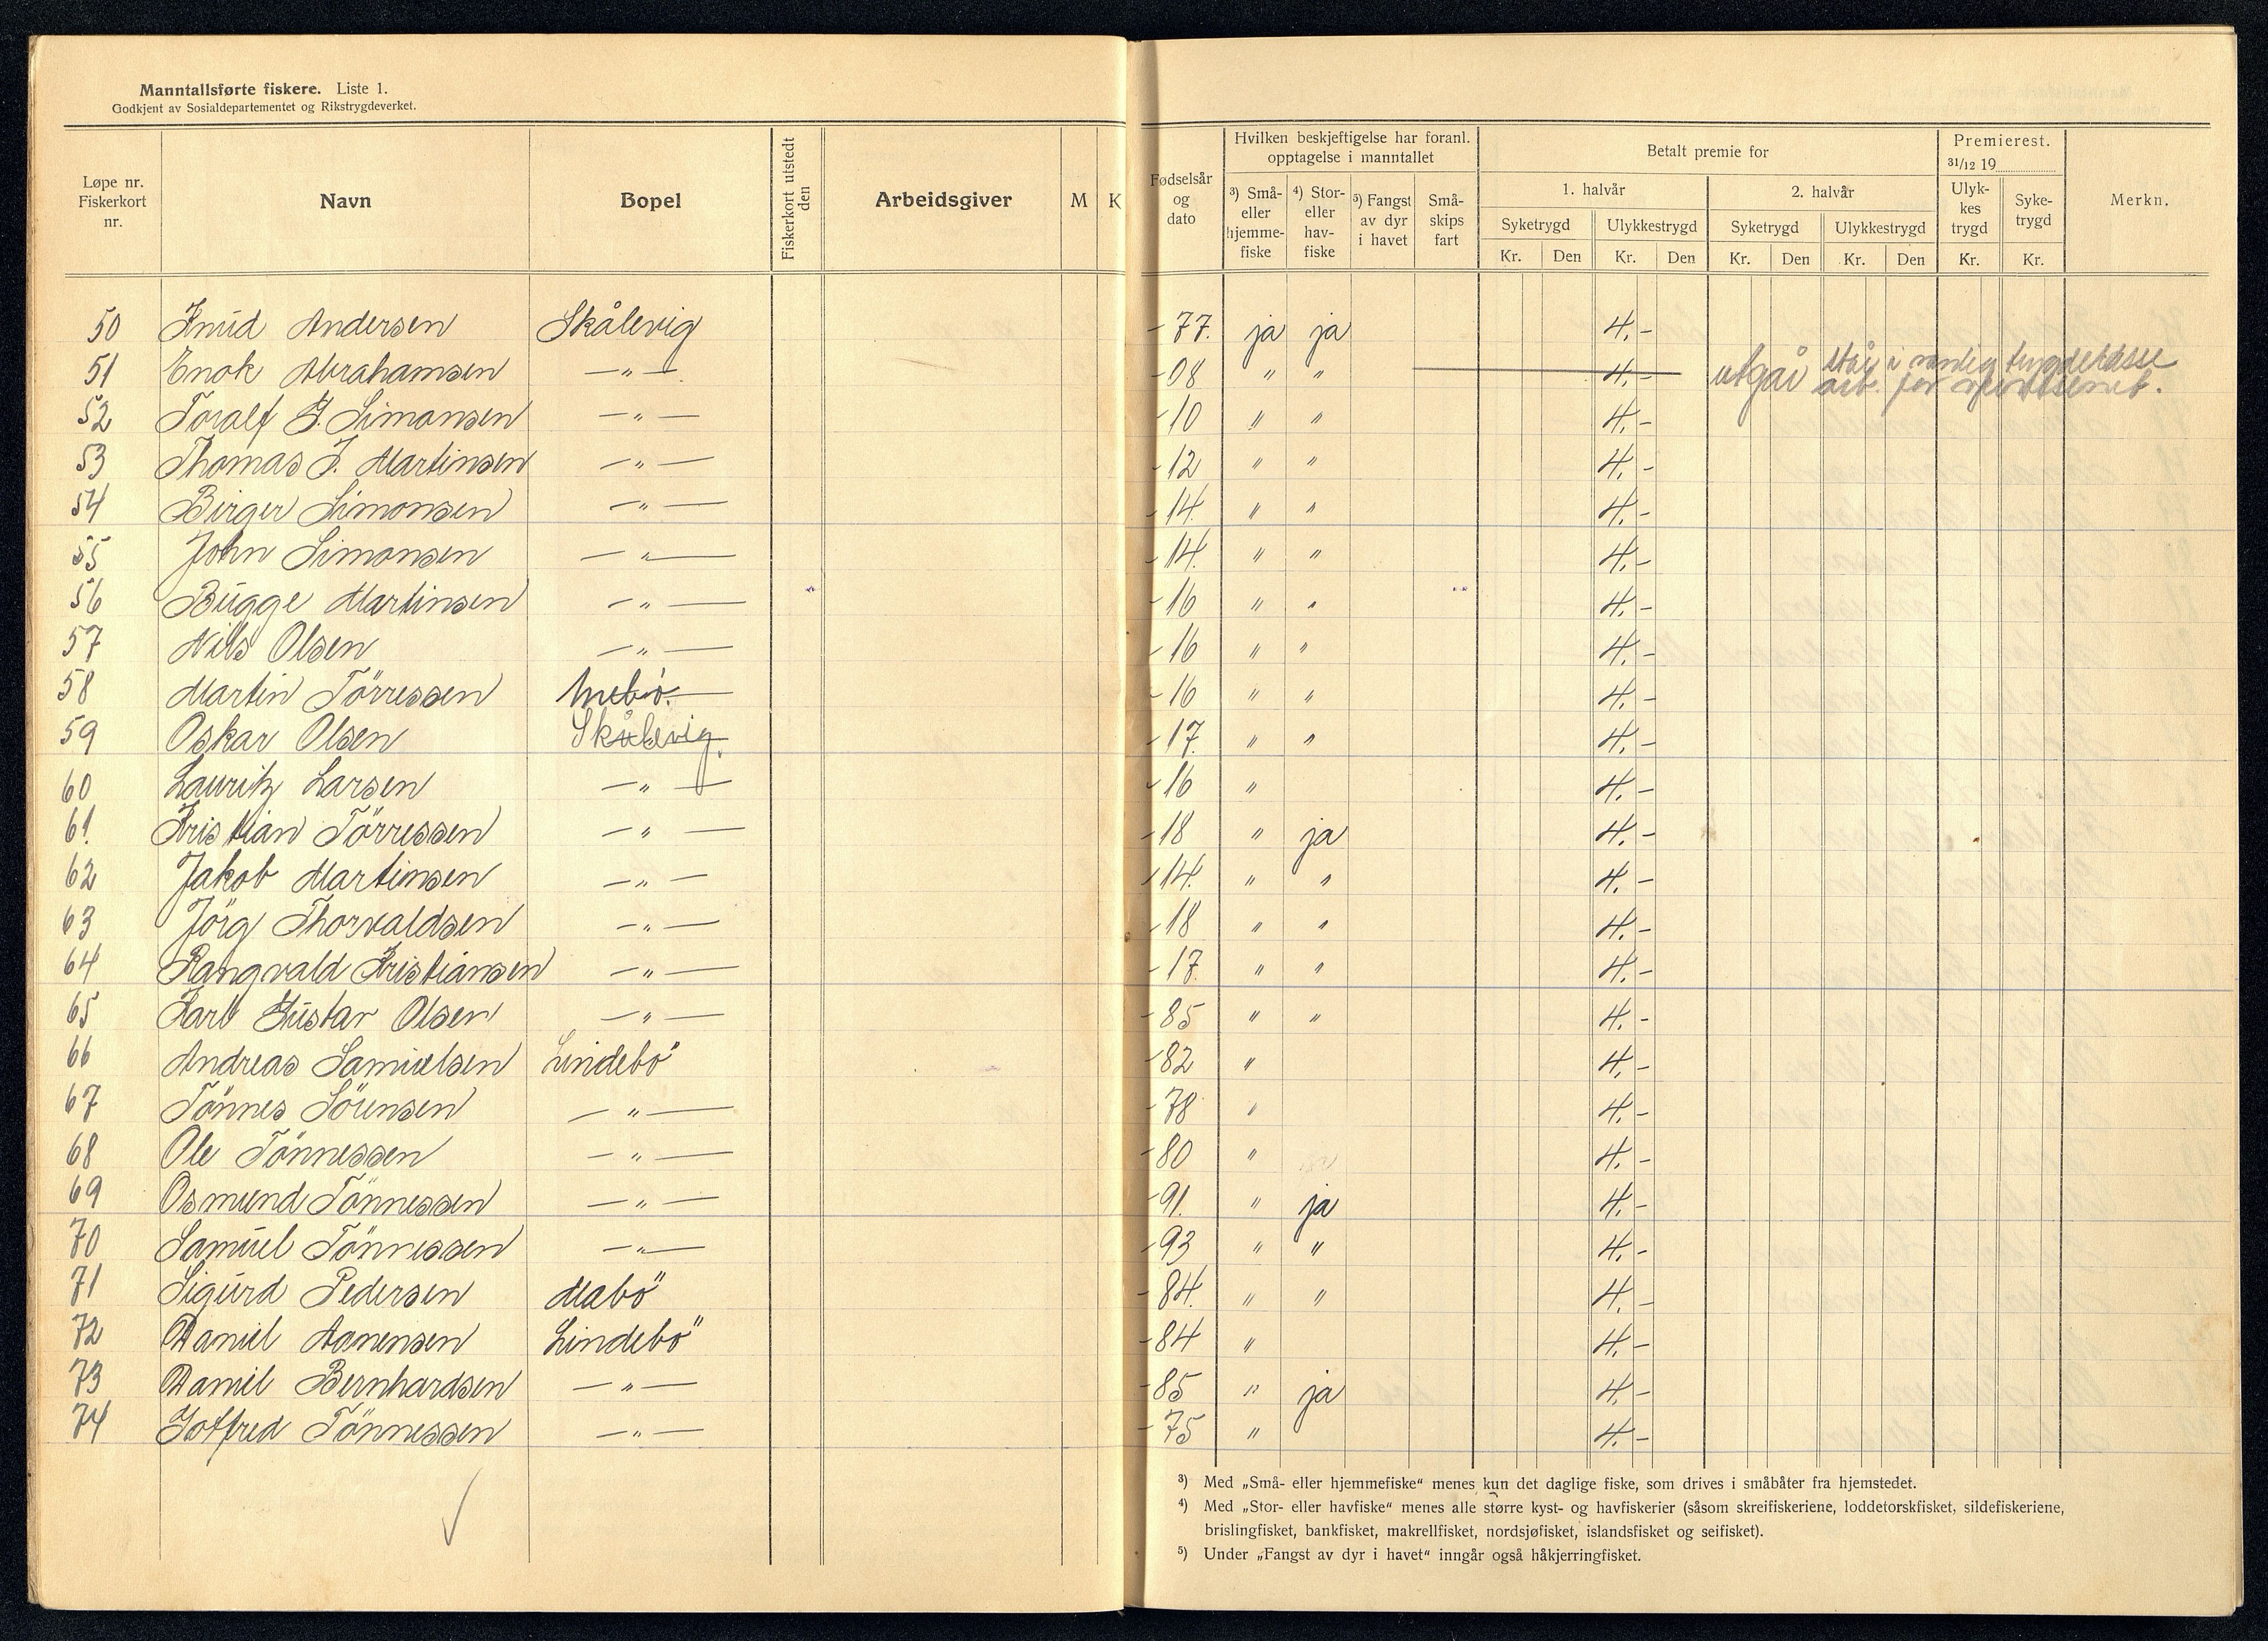 Manntallsførte fiskere. Liste 1.
Godkjent av Sosialdepartementet og Rikstrygdeverket.
Løpe nr. Fiskerkort nr. Navn Bopel Fiskerkort utstedt den Arbeidsgiver M K Fødselsår og dato
Hvilken beskjeftigelse har foranl. opptagelse i manntallet
³) Små- eller hjemme-fiske ⁴) Stor- eller hav-fiske ⁵) Fangst av dyr i havet Små-skips fart
Betalt premie for
1. halvår 2. halvår
Syketrygd Ulykkestrygd Syketrygd Ulykkestrygd
Kr. Den Kr. Den Kr. Den Kr. Den
Premierest. 31/12 19
Ulyk-kes trygd Syke-trygd
Kr. Kr.
Merkn.
50 Knud Andersen Skålevig -77. ja ja 4.-
51 Enok Abrahamsen —"— -08 " " 4.- utgår står i vanlig trygdekasse arb. for
52 Toralf G. Simonsen —"— -10 " " 4.-
53 Thomas J. Martinsen —"— -12 " " 4.-
54 Birger Simonsen —"— -14. " " 4.-
55 John Simonsen —"— -14. " " 4.-
56 Bugge Martinsen —"— -16 " " 4.-
57 Nils Olsen —"— -16 " " 4.-
58 Martin Törressen -16 " " 4.-
59 Oskar Olsen Skålevig -17. " " 4.-
60 Lauritz Larsen —"— -16 " 4.-
61. Kristian Törressen —"— -18 " ja 4.-
62 Jakob Martinsen —"— -14. " " 4.-
63 Jörg Thorvaldsen —"— -18 " " 4.-
64 Rangvald Kristiansen —"— -17. " " 4.-
65 Karl Gustav Olsen —"— -85 " " 4.-
66 Andreas Samuelsen Lindebö -82 " 4.-
67 Tönnes Sörensen —"— -78 " 4.-
68 Ole Tönnessen —"— -80 " 4.-
69 Osmund Tönnessen —"— -91. " ja 4.-
70 Samuel Tönnessen —"— -93 " " 4.-
71 Sigurd Pedersen Mabö -84. " " 4.-
72 Daniel Aanensen Lindebö -84 " 4.-
73 Daniel Bernhardsen —"— -85 " ja 4.-
74 Gotfred Tönnessen —"— -75 " 4.-
³) Med „Små- eller hjemmefiske“ menes kun det daglige fiske, som drives i småbåter fra hjemstedet.
⁴) Med „Stor- eller havfiske“ menes alle større kyst- og havfiskerier (såsom skreifiskeriene, loddetorskfisket, sildefiskeriene,
brislingfisket, bankfisket, makrellfisket, nordsjøfisket, islandsfisket og seifisket).
⁵) Under „Fangst av dyr i havet“ inngår også håkjerringfisket.